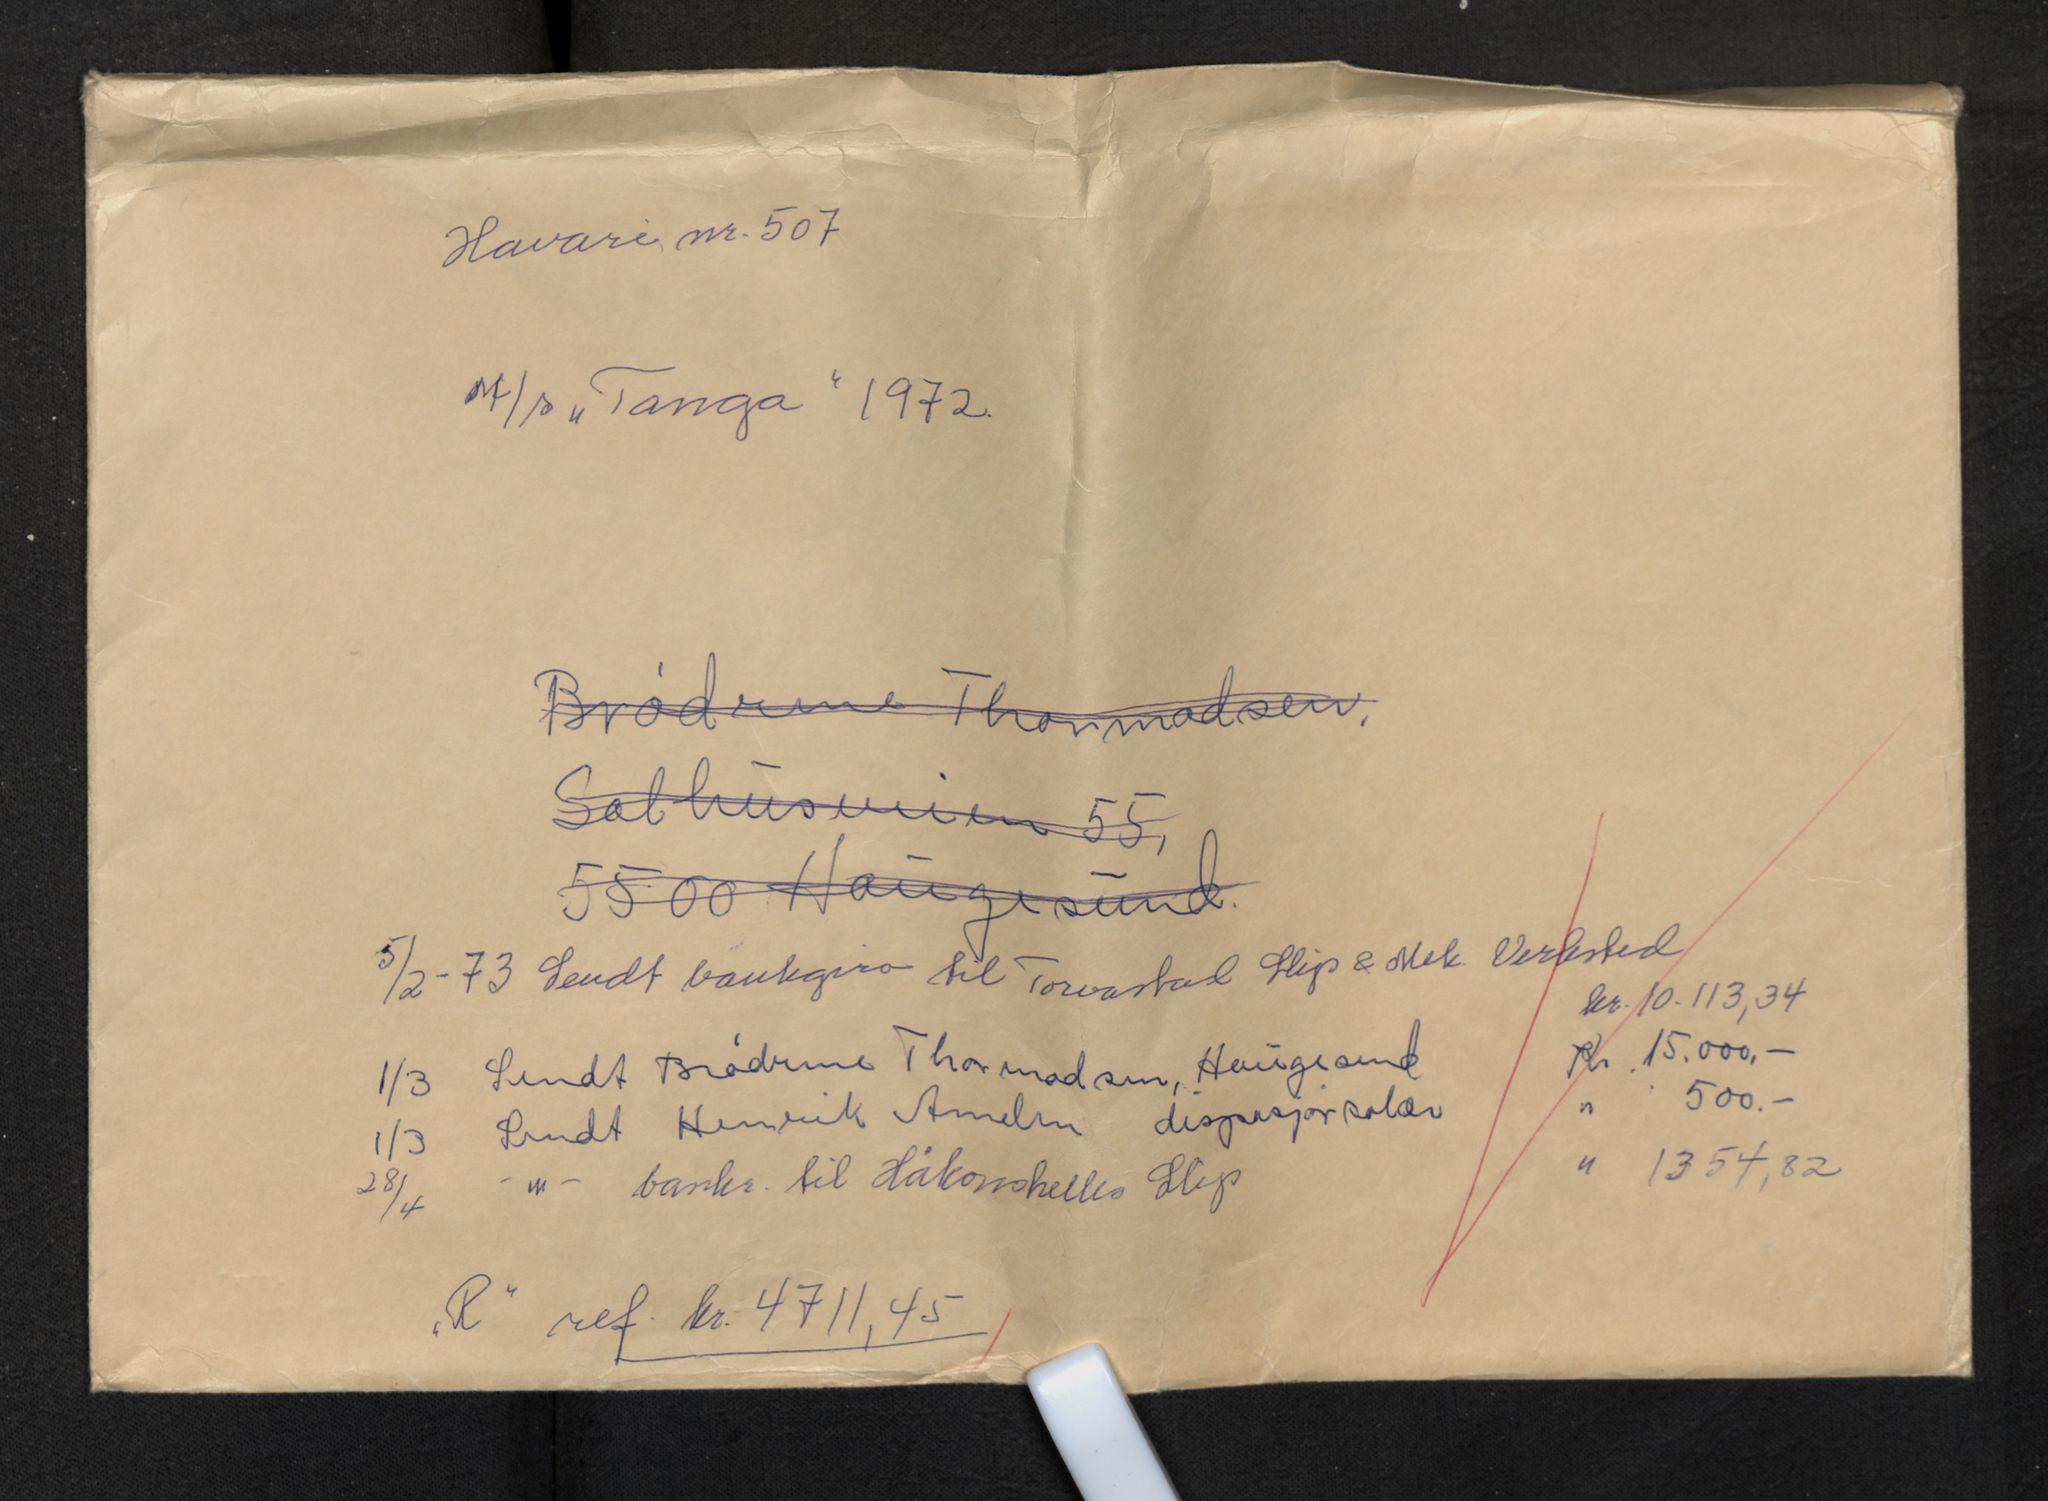 Havari nr. 507
M/s „Tanga“ 1972.
Brødrene Thormodsen,
Salhusveien 55,
5500 Haugesund.
5/2-73 Sendt bankgiro til Torvastad Slip & Mek. Verksted
kr. 10.113,34
1/3 Sendt Brødrene Thormodsen, Haugesund kr. 15.000,-
1/3 Sendt Henrik Ameln dispasjørsalær " 500.-
28/4 -"- bankr. til Håkonshellas Slip " 1354,82
„R“ ref. kr. 4711,45